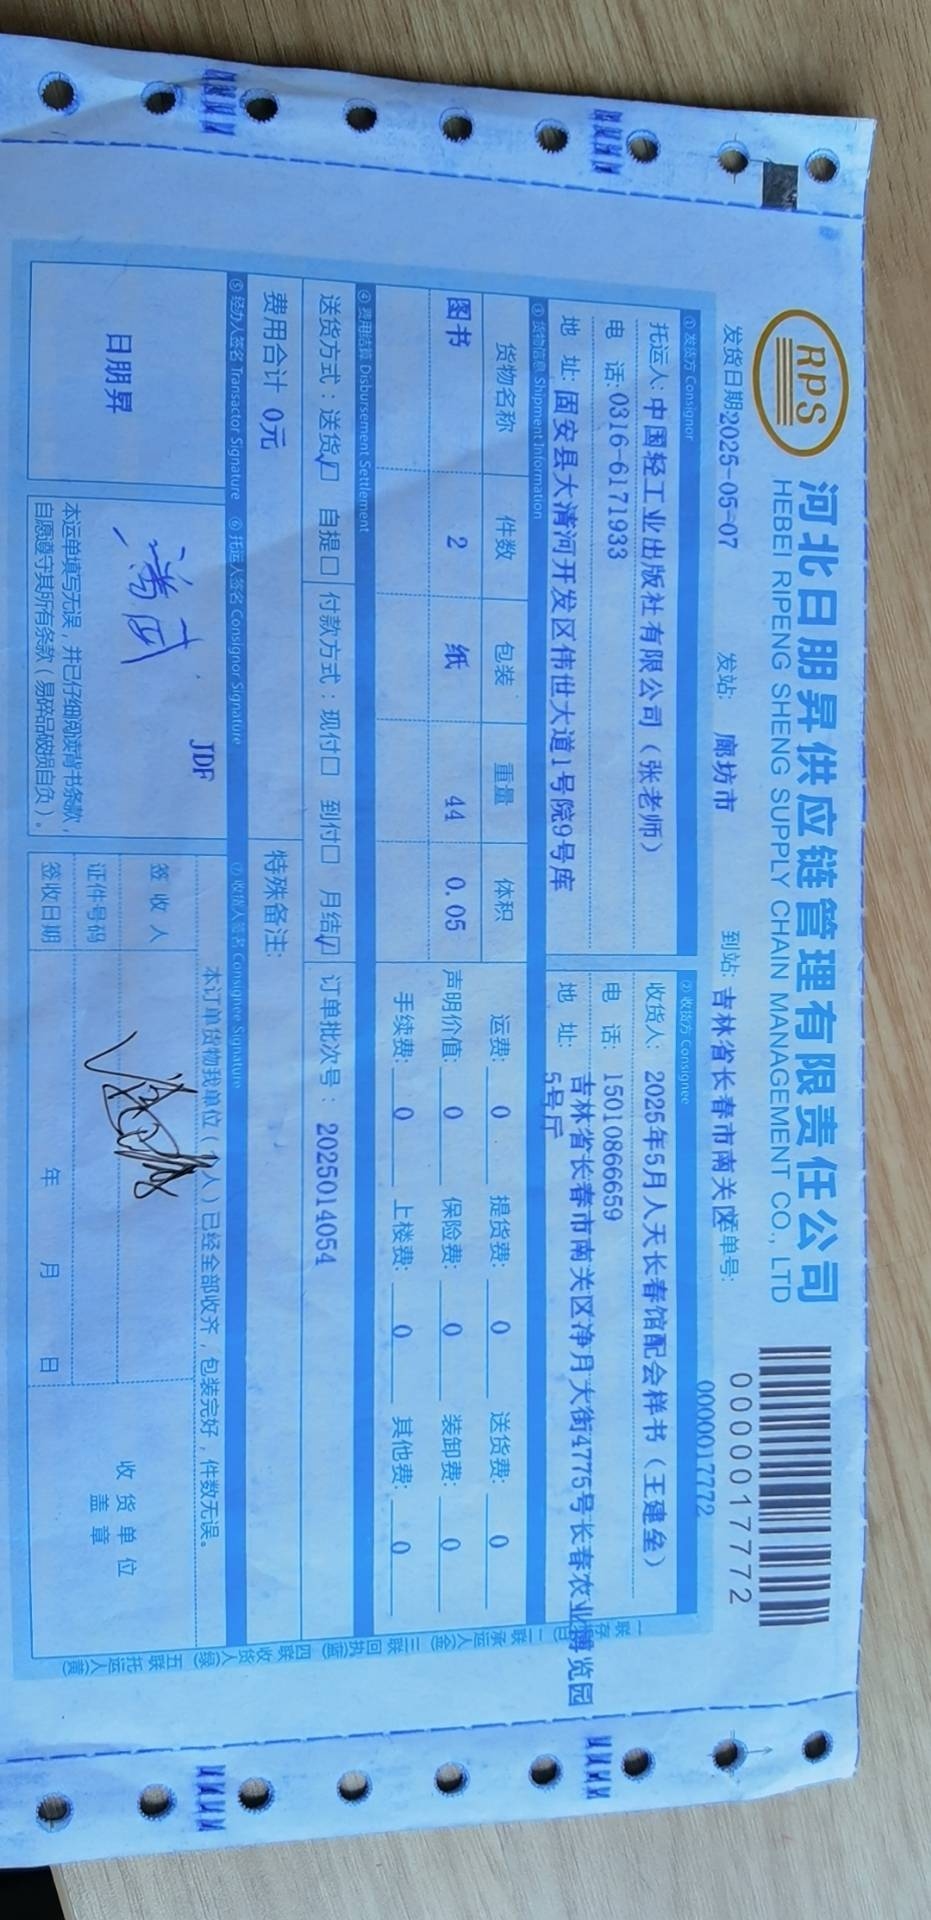 RPS
河北日朋昇供应链管理有限责任公司
HEBEI RIPENG SHENG SUPPLY CHAIN MANAGEMENT CO., LTD
0000017772
发货日期:2025-05-07 发站: 廊坊市 到站: 吉林省长春市南关区 运单号: 0000017772
① 发货方 Consignor
托运人: 中国轻工业出版社有限公司（张老师）
电 话: 0316-6171933
地 址: 固安县大清河开发区伟世大道1号院9号库
② 收货方 Consignee
收货人: 2025年5月人天长春馆配会样书（王建垒）
电 话: 15010866659
地 址: 吉林省长春市南关区净月大街4775号长春农业博览园
5号厅
③ 货物信息 Shipment Information
货物名称 件数 包装 重量 体积
图书 2 纸 44 0.05
运费: 0 提货费: 0 送货费: 0
声明价值: 0 保险费: 0 装卸费: 0
手续费: 0 上楼费: 0 其他费: 0
④ 费用结算 Disbursement Settlement
送货方式：送货☑ 自提□ 付款方式：现付□ 到付□ 月结☑ 订单批次号：2025014054
费用合计 0元 特殊备注:
⑤ 经办人签名 Transactor Signature
日朋昇
⑥ 托运人签名 Consignor Signature
JDF
本运单填写无误，并已仔细阅读背书条款，
自愿遵守其所有条款（易碎品破损自负）。
⑦ 收货人签名 Consignee Signature
本订单货物我单位（人）已经全部收齐，包装完好，件数无误。
签 收 人
证件号码
签收日期 年 月 日
收 货 单 位
盖 章
一联 存根(白) 二联 承运人(金) 三联 回执(蓝) 四联 收货人(绿) 五联 托运人(黄)